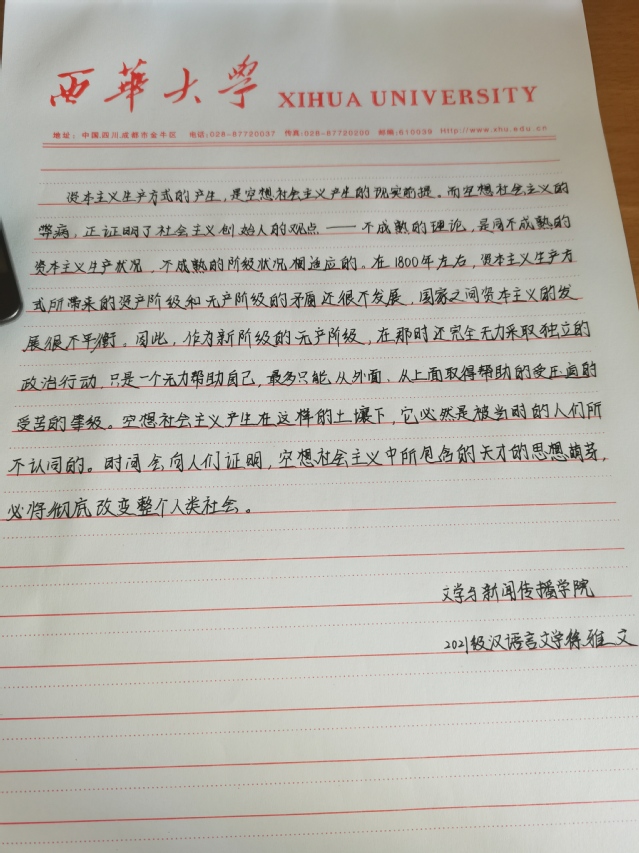 西華大學 XIHUA UNIVERSITY
地址：中国.四川.成都市金牛区 电话:028-87720037 传真:028-87720200 邮编:610039 Http://www.xhu.edu.cn
资本主义生产方式的产生，是空想社会主义产生的现实前提。而空想社会主义的
弊病，正证明了社会主义创始人的观点——不成熟的理论，是同不成熟的
资本主义生产状况，不成熟的阶级状况相适应的。在1800年左右，资本主义生产方
式所带来的资产阶级和无产阶级的矛盾还很不发展，国家之间资本主义的发
展很不平衡。因此，作为新阶级的无产阶级，在那时还完全无力采取独立的
政治行动，只是一个无力帮助自己，最多只能从外面、从上面取得帮助的受压迫的
受苦的等级。空想社会主义产生在这样的土壤下，它必然是被当时的人们所
不认同的。时间会向人们证明，空想社会主义中所包含的天才的思想萌芽，
必将彻底改变整个人类社会。
文学与新闻传播学院
2021级汉语言文学徐雅文